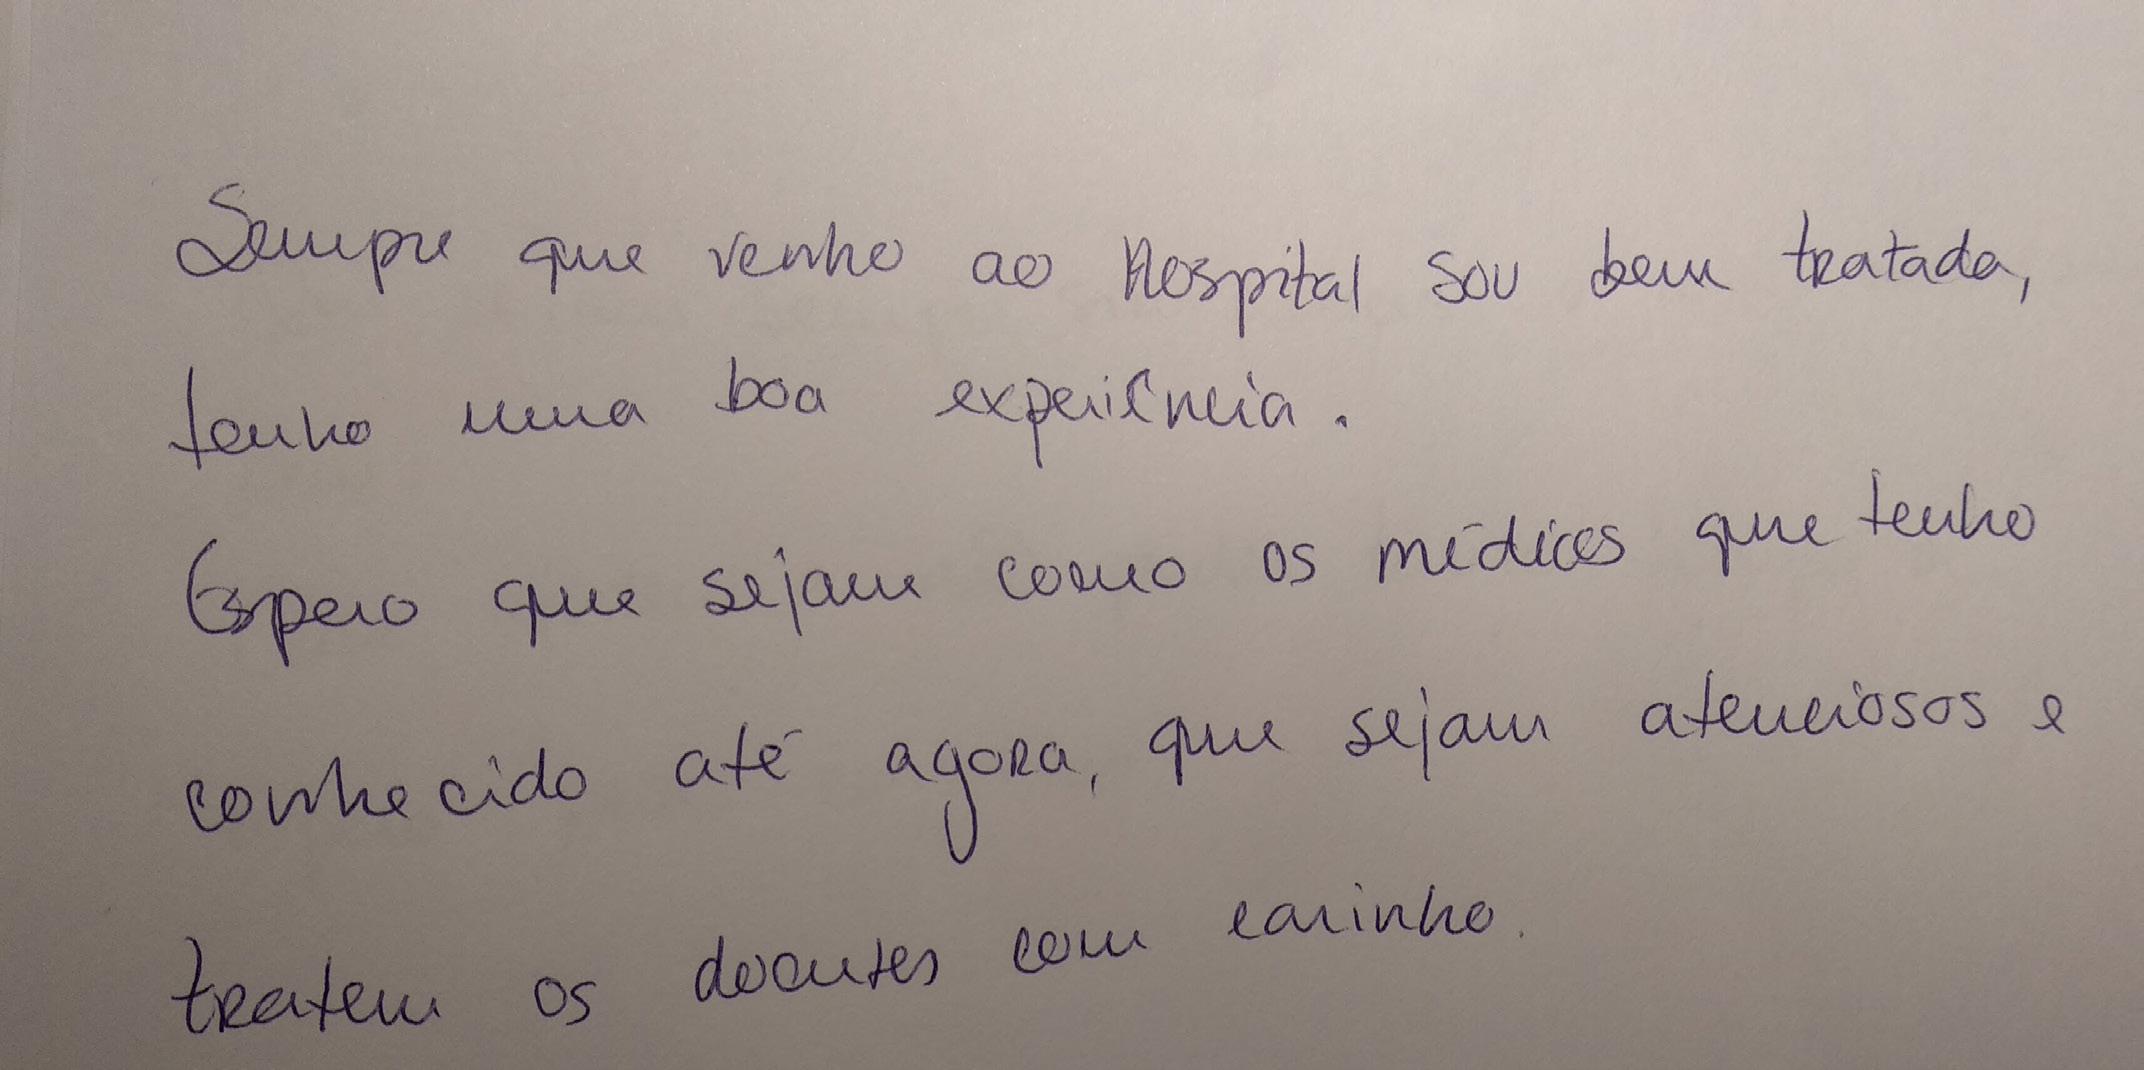 Sempre que venho ao Hospital sou bem tratada,
tenho uma boa experiência.
Espero que sejam como os médicos que tenho
conhecido até agora, que sejam atenciosos e
tratem os doentes com carinho.